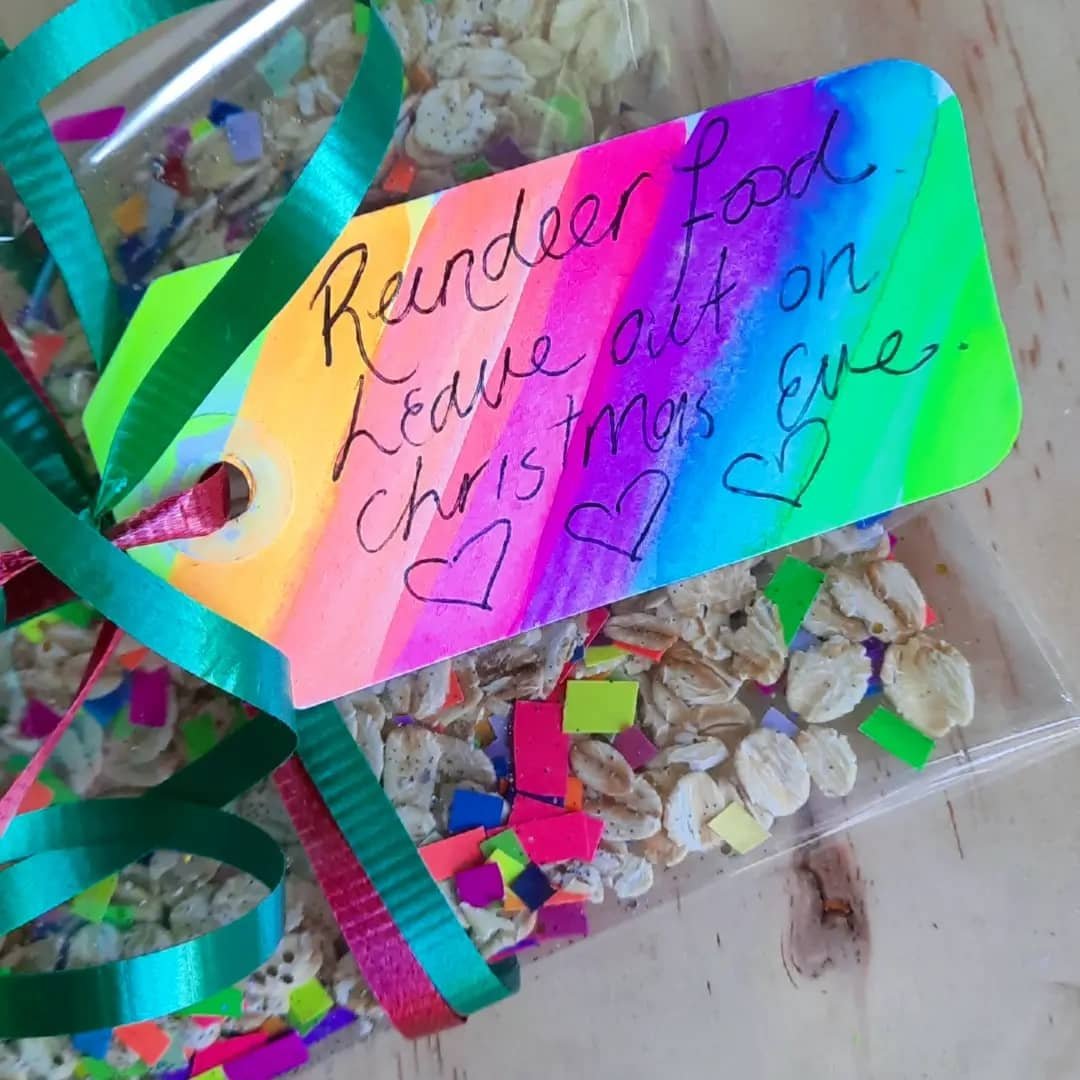 Reindeer food
Leave out on
christmas Eve.